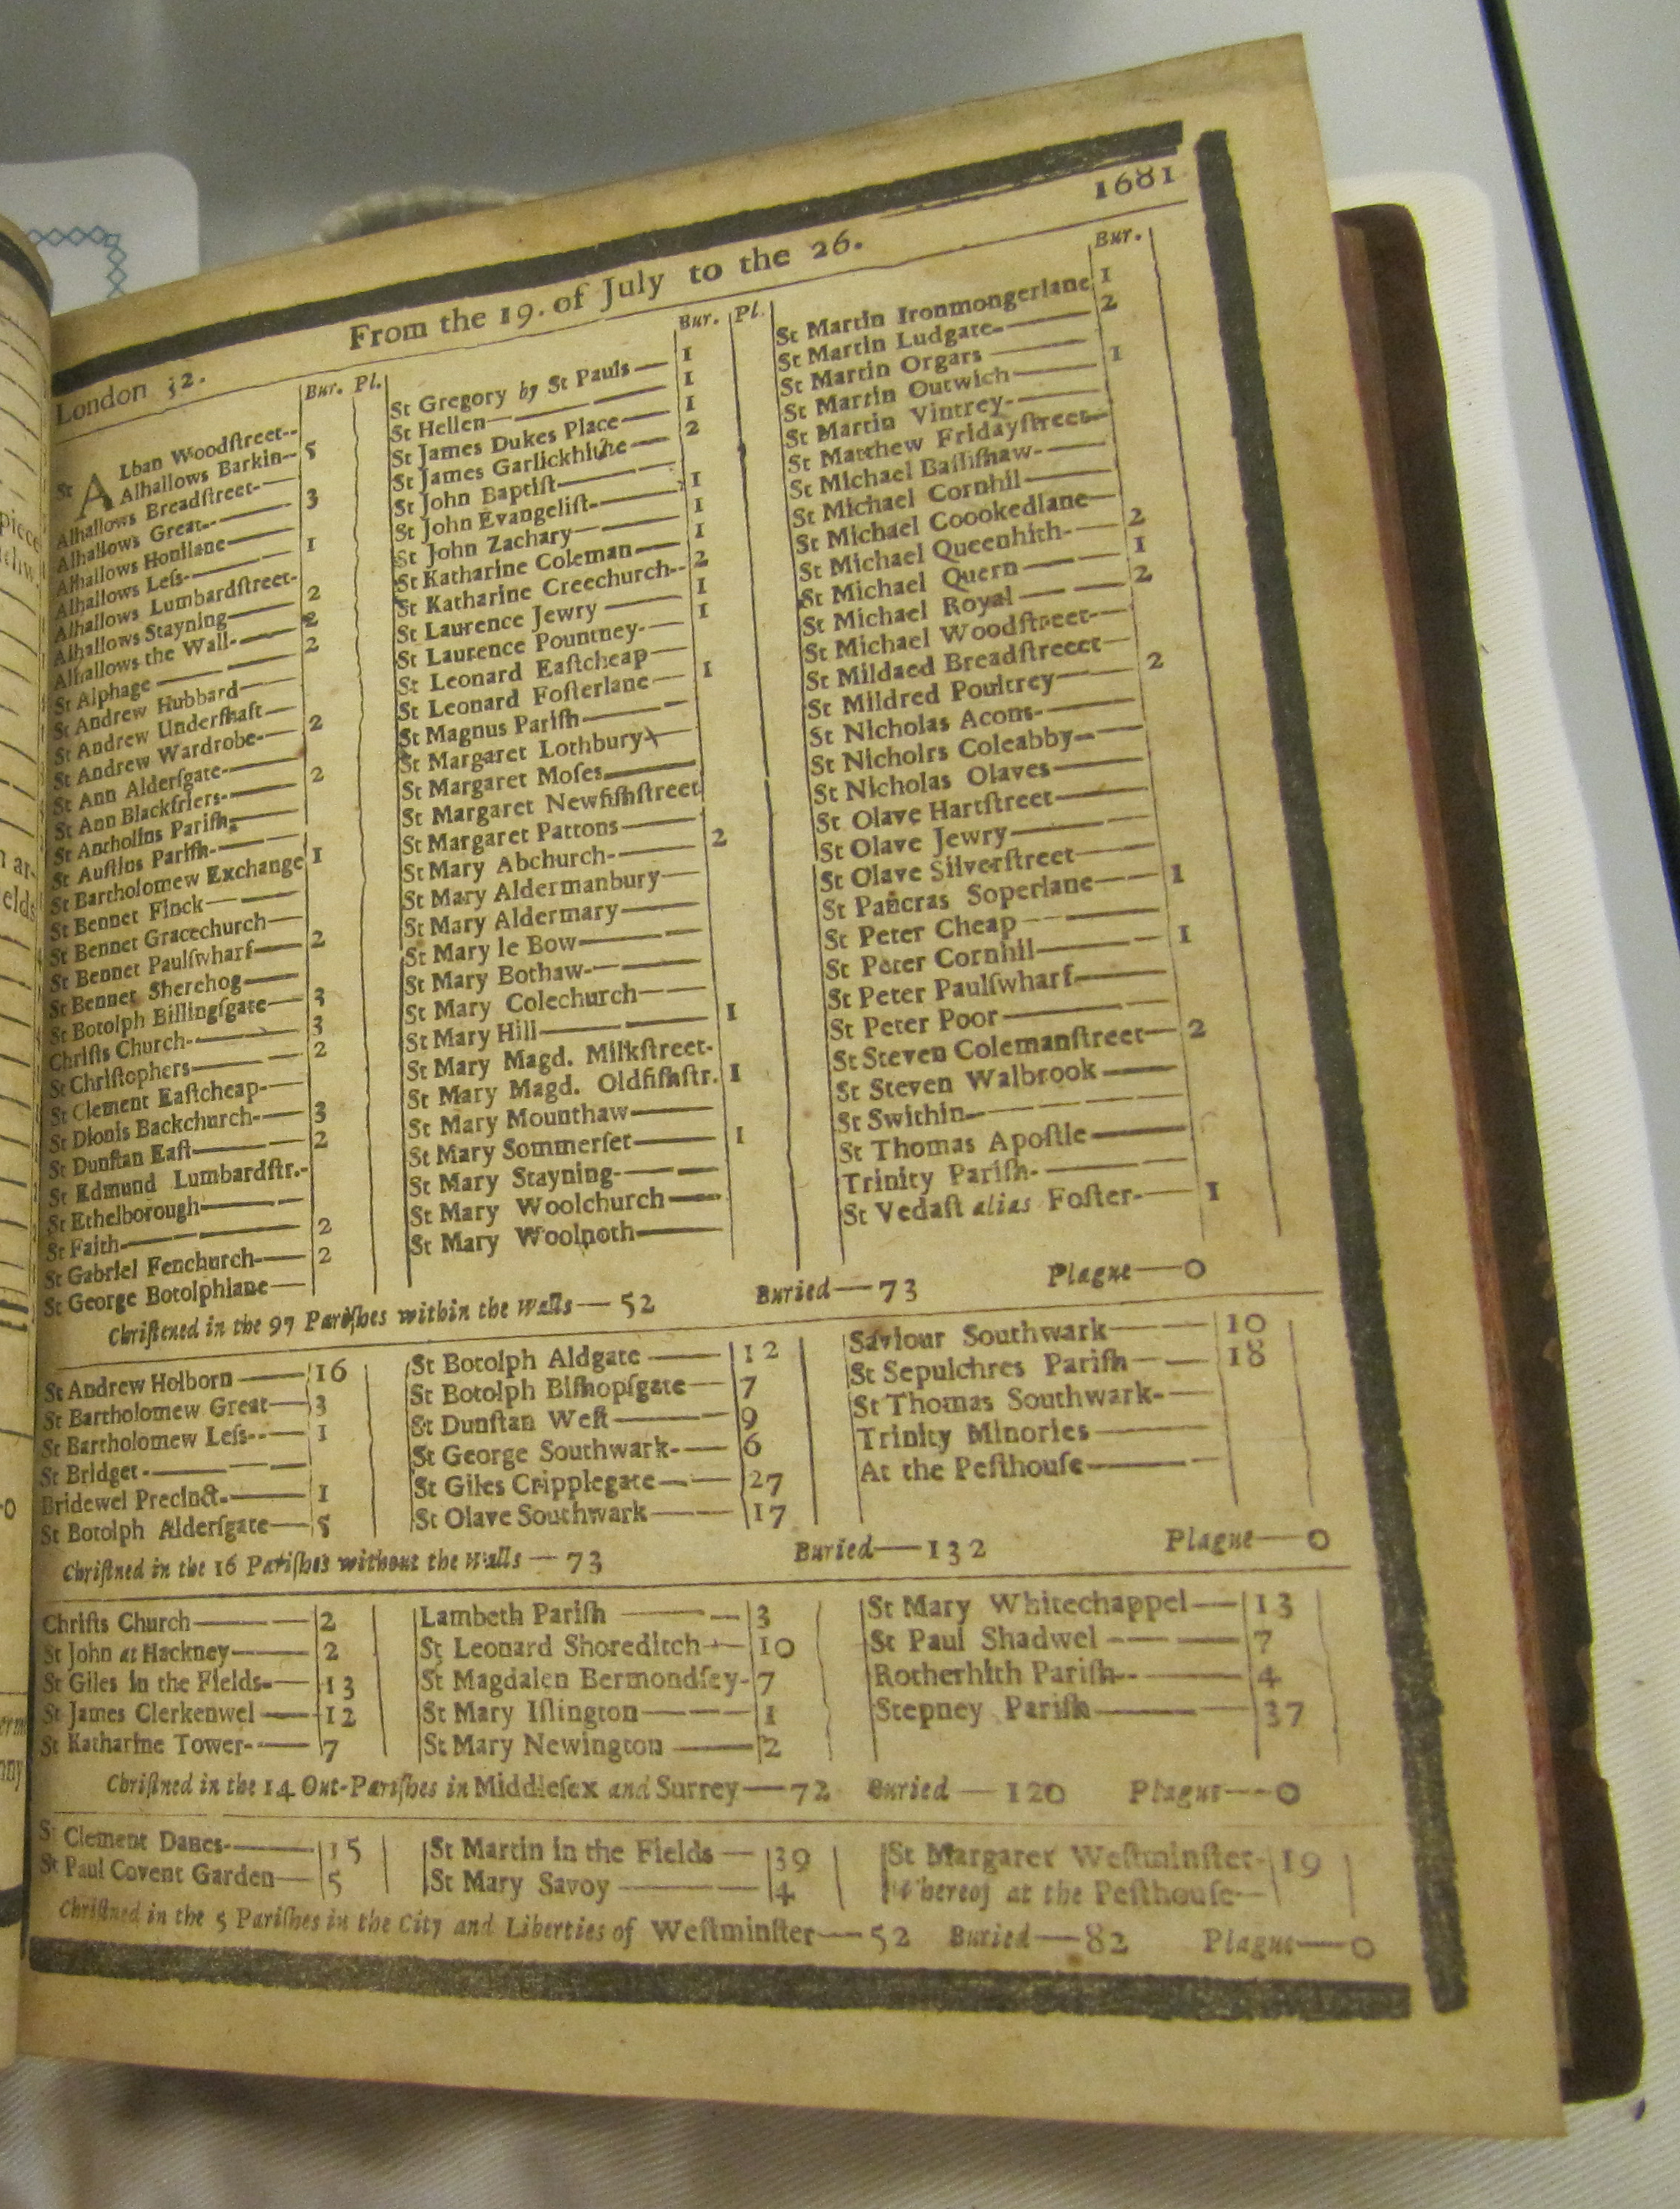 1681
From the 19. of July to the 26.
London 32.
Bur. Pl.
St ALban Woodſtreet--
Alhallows Barkin-- 5
Alhallows Breadſtreet-
Alhallows Great-- 3
Alhallows Honilane
Alhallows Leſs- 1
Alhallows Lumbardſtreet-
Alhallows Stayning 2
Alhallows the Wall- 2
St Alphage 2
St Andrew Hubbard
St Andrew Underſhaft
St Andrew Wardrobe- 2
St Ann Alderſgate-
St Ann Blackfriers- 2
St Antholins Pariſh
St Auſtins Pariſh
St Bartholomew Exchange 1
St Bennet Finck
St Bennet Gracechurch
St Bennet Paulſwharf 2
St Bennet Sherehog
St Botolph Billingſgate 3
Chriſts Church- 3
St Chriſtophers 2
St Clement Eaſtcheap-
St Dionis Backchurch- 3
St Dunſtan Eaſt 2
St Edmund Lumbardſtr.-
St Ethelborough
St Faith 2
St Gabriel Fenchurch- 2
St George Botolphlane
Bur. Pl.
St Gregory by St Pauls 1
St Hellen 1
St James Dukes Place 1
St James Garlickhithe 2
St John Baptiſt
St John Evangeliſt 1
St John Zachary 1
St Katharine Coleman 1
St Katharine Creechurch-- 2
St Laurence Jewry 1
St Laurence Pountney- 1
St Leonard Eaſtcheap
St Leonard Foſterlane 1
St Magnus Pariſh
St Margaret Lothbury
St Margaret Moſes
St Margaret Newfiſhſtreet
St Margaret Pattons
St Mary Abchurch- 2
St Mary Aldermanbury
St Mary Aldermary
St Mary le Bow
St Mary Bothaw-
St Mary Colechurch
St Mary Hill 1
St Mary Magd. Milkſtreet-
St Mary Magd. Oldfiſhſtr. 1
St Mary Mounthaw
St Mary Sommerſet 1
St Mary Stayning-
St Mary Woolchurch
St Mary Woolnoth
Bur.
St Martin Ironmongerlane 1
St Martin Ludgate- 2
St Martin Orgars
St Martin Outwich 1
St Martin Vintrey-
St Matthew Fridayſtreet
St Michael Baſſiſhaw-
St Michael Cornhil
St Michael Coookedlane
St Michael Queenhith- 2
St Michael Quern 1
St Michael Royal 2
St Michael Woodſtreet-
St Mildaed Breadſtreet
St Mildred Poultrey 2
St Nicholas Acons-
St Nicholrs Coleabby
St Nicholas Olaves
St Olave Hartſtreet
St Olave Jewry
St Olave Silverſtreet
St Pancras Soperlane 1
St Peter Cheap
St Peter Cornhil 1
St Peter Paulſwharf
St Peter Poor
St Steven Colemanſtreet 2
St Steven Walbrook
St Swithin
St Thomas Apoſtle
Trinity Pariſh-
St Vedaſt alias Foſter- 1
Chriſtened in the 97 Pariſhes within the Walls — 52 Buried — 73 Plague — 0
St Andrew Holborn 16
St Bartholomew Great 3
St Bartholomew Leſs-- 1
St Bridget -
Bridewel Precinct- 1
St Botolph Alderſgate 5
St Botolph Aldgate 12
St Botolph Biſhopſgate 7
St Dunſtan Weſt 9
St George Southwark- 6
St Giles Cripplegate 27
St Olave Southwark 17
Saviour Southwark 10
St Sepulchres Pariſh 18
St Thomas Southwark-
Trinity Minories
At the Peſthouſe
Chriſtned in the 16 Pariſhes without the Walls — 73 Buried — 132 Plague — 0
Chriſts Church 2
St John at Hackney 2
St Giles in the Fields 13
St James Clerkenwel 12
St Katharine Tower- 7
Lambeth Pariſh 3
St Leonard Shoreditch 10
St Magdalen Bermondſey- 7
St Mary Iſlington 1
St Mary Newington 2
St Mary Whitechappel 13
St Paul Shadwel 7
Rotherhith Pariſh- 4
Stepney Pariſh 37
Chriſtned in the 14 Out-Pariſhes in Middleſex and Surrey — 72 Buried — 120 Plague — 0
St Clement Danes- 15
St Paul Covent Garden 5
St Martin in the Fields 39
St Mary Savoy 4
St Margaret Weſtminſter- 19
Whereof at the Peſthouſe
Chriſtned in the 5 Pariſhes in the City and Liberties of Weſtminſter — 52 Buried — 82 Plague — 0